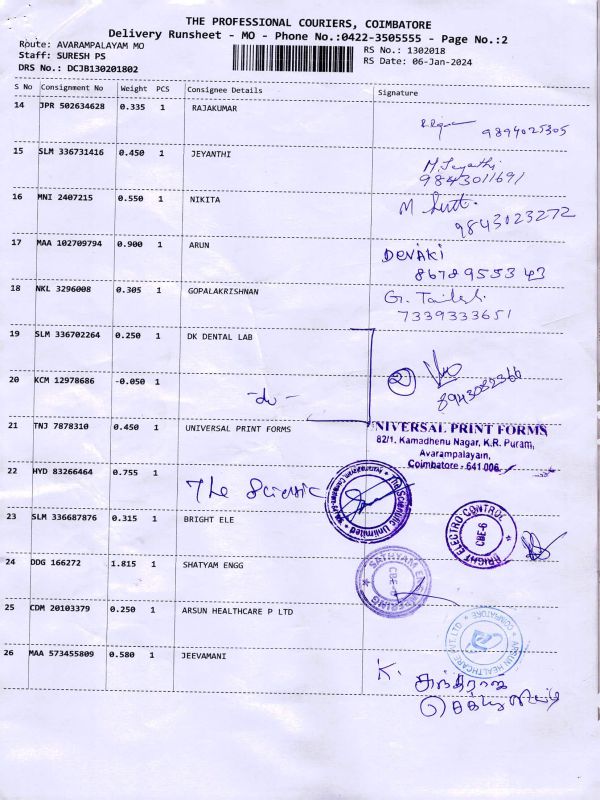 THE PROFESSIONAL COURIERS, COIMBATORE
Delivery Runsheet - MO - Phone No.:0422-3505555 - Page No.:2
Route: AVARAMPALAYAM MO
Staff: SURESH PS
DRS No.: DCJB130201802
RS No.: 1302018
RS Date: 06-Jan-2024
S No Consignment No Weight PCS Consignee Details Signature
14 JPR 502634628 0.335 1 RAJAKUMAR
9894025305
15 SLM 336731416 0.450 1 JEYANTHI
M. Jeyathi
9843011691
16 MNI 2407215 0.550 1 NIKITA
9843023272
17 MAA 102709794 0.900 1 ARUN
DEVAKI
8678955343
18 NKL 3296008 0.305 1 GOPALAKRISHNAN
7339333651
19 SLM 336702264 0.250 1 DK DENTAL LAB
20 KCM 12978686 -0.050 1 -do-
2
8943082366
21 TNJ 7878310 0.450 1 UNIVERSAL PRINT FORMS
NIVERSAL PRINT FORMS
82/1, Kamadhenu Nagar, K.R. Puram,
Avarampalayam,
Coimbatore - 641 006.
22 HYD 83266464 0.755 1 The Scientific
The Scientific Unlimited
23 SLM 336687876 0.315 1 BRIGHT ELE
BRIGHT ELECTRO CONTROL
CBE-6
24 DDG 166272 1.815 1 SHATYAM ENGG
SATHYAM
25 CDM 20103379 0.250 1 ARSUN HEALTHCARE P LTD
ARSUN HEALTHCARE PVT LTD
COIMBATORE
26 MAA 573455809 0.580 1 JEEVAMANI
K.